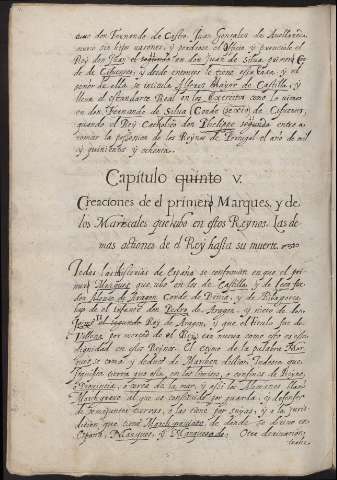 con don Fernando de Castro. Juan Gonçales de Avellaneda
murio sin hijo varones, y perdiose el oficio, y proveiolo el
Rey don Juan el segundo en don Juan de Silua primero Cõ
de de Cifuentes, y desde entonces le tiene esta casa, y el
señor de ella se intitula Alferez Mayor de Castilla, y
lleua el estandarte Real en los Exercitos como lo vimos
en don Fernando de Silua Conde de Cifuentes,
quando el Rey Catholico don Phelippe segundo entro a
tomar la possession de los Reynos de Portugal el año de mil
y quinientos y ochenta.
Capitulo quinto V.
Creaciones de el primero Marques, y de
los Mariscales que hubo en estos Reynos. Las de
mas actiones de el Rey hasta su muerte.
Todas las historias de España se conforman en que el pri
mero Marques que ubo en los de Castilla, y de Leon fue
don Alonso de Aragon Conde de Denia, y de Ribagorça
hijo de el infante don Pedro de Aragon, y nieto de don
Jayme el segundo Rey de Aragon, y que el titulo fue de
Villena por merced de el Rey
dignidad en estos Reynos. El origen de la palabra Mar
ques se toma, y deduce de
aquella tierra que esta en los limites, o confines de Reyno,
o Prouincia, o cerca de la mar, y assi los Alemanes llaman
Marchgraue al que es constituido por guarda, y defensor
de semejantes tierras, o las tiene por suyas, y a la juris
dicion que tiene Marchgraviato de donde se dixeron en
España, Marques, y Marquesado. Otra deriuacion